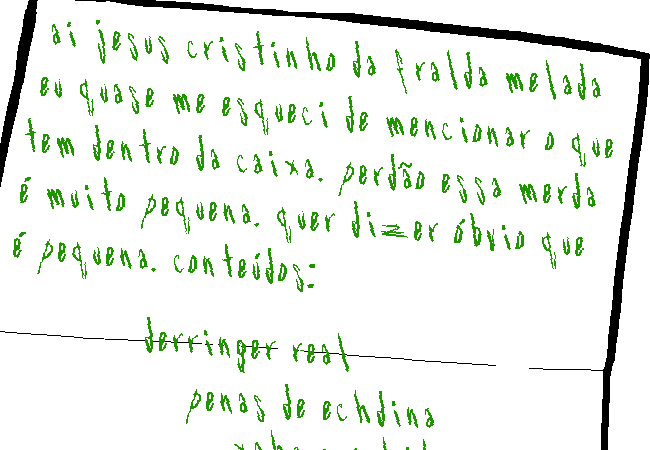 ai jesus cristinho da fralda melada
eu quase me esqueci de mencionar o que
tem dentro da caixa. perdão essa merda
é muito pequena. quer dizer óbvio que
é pequena. conteúdos:
derringer real
penas de echdina